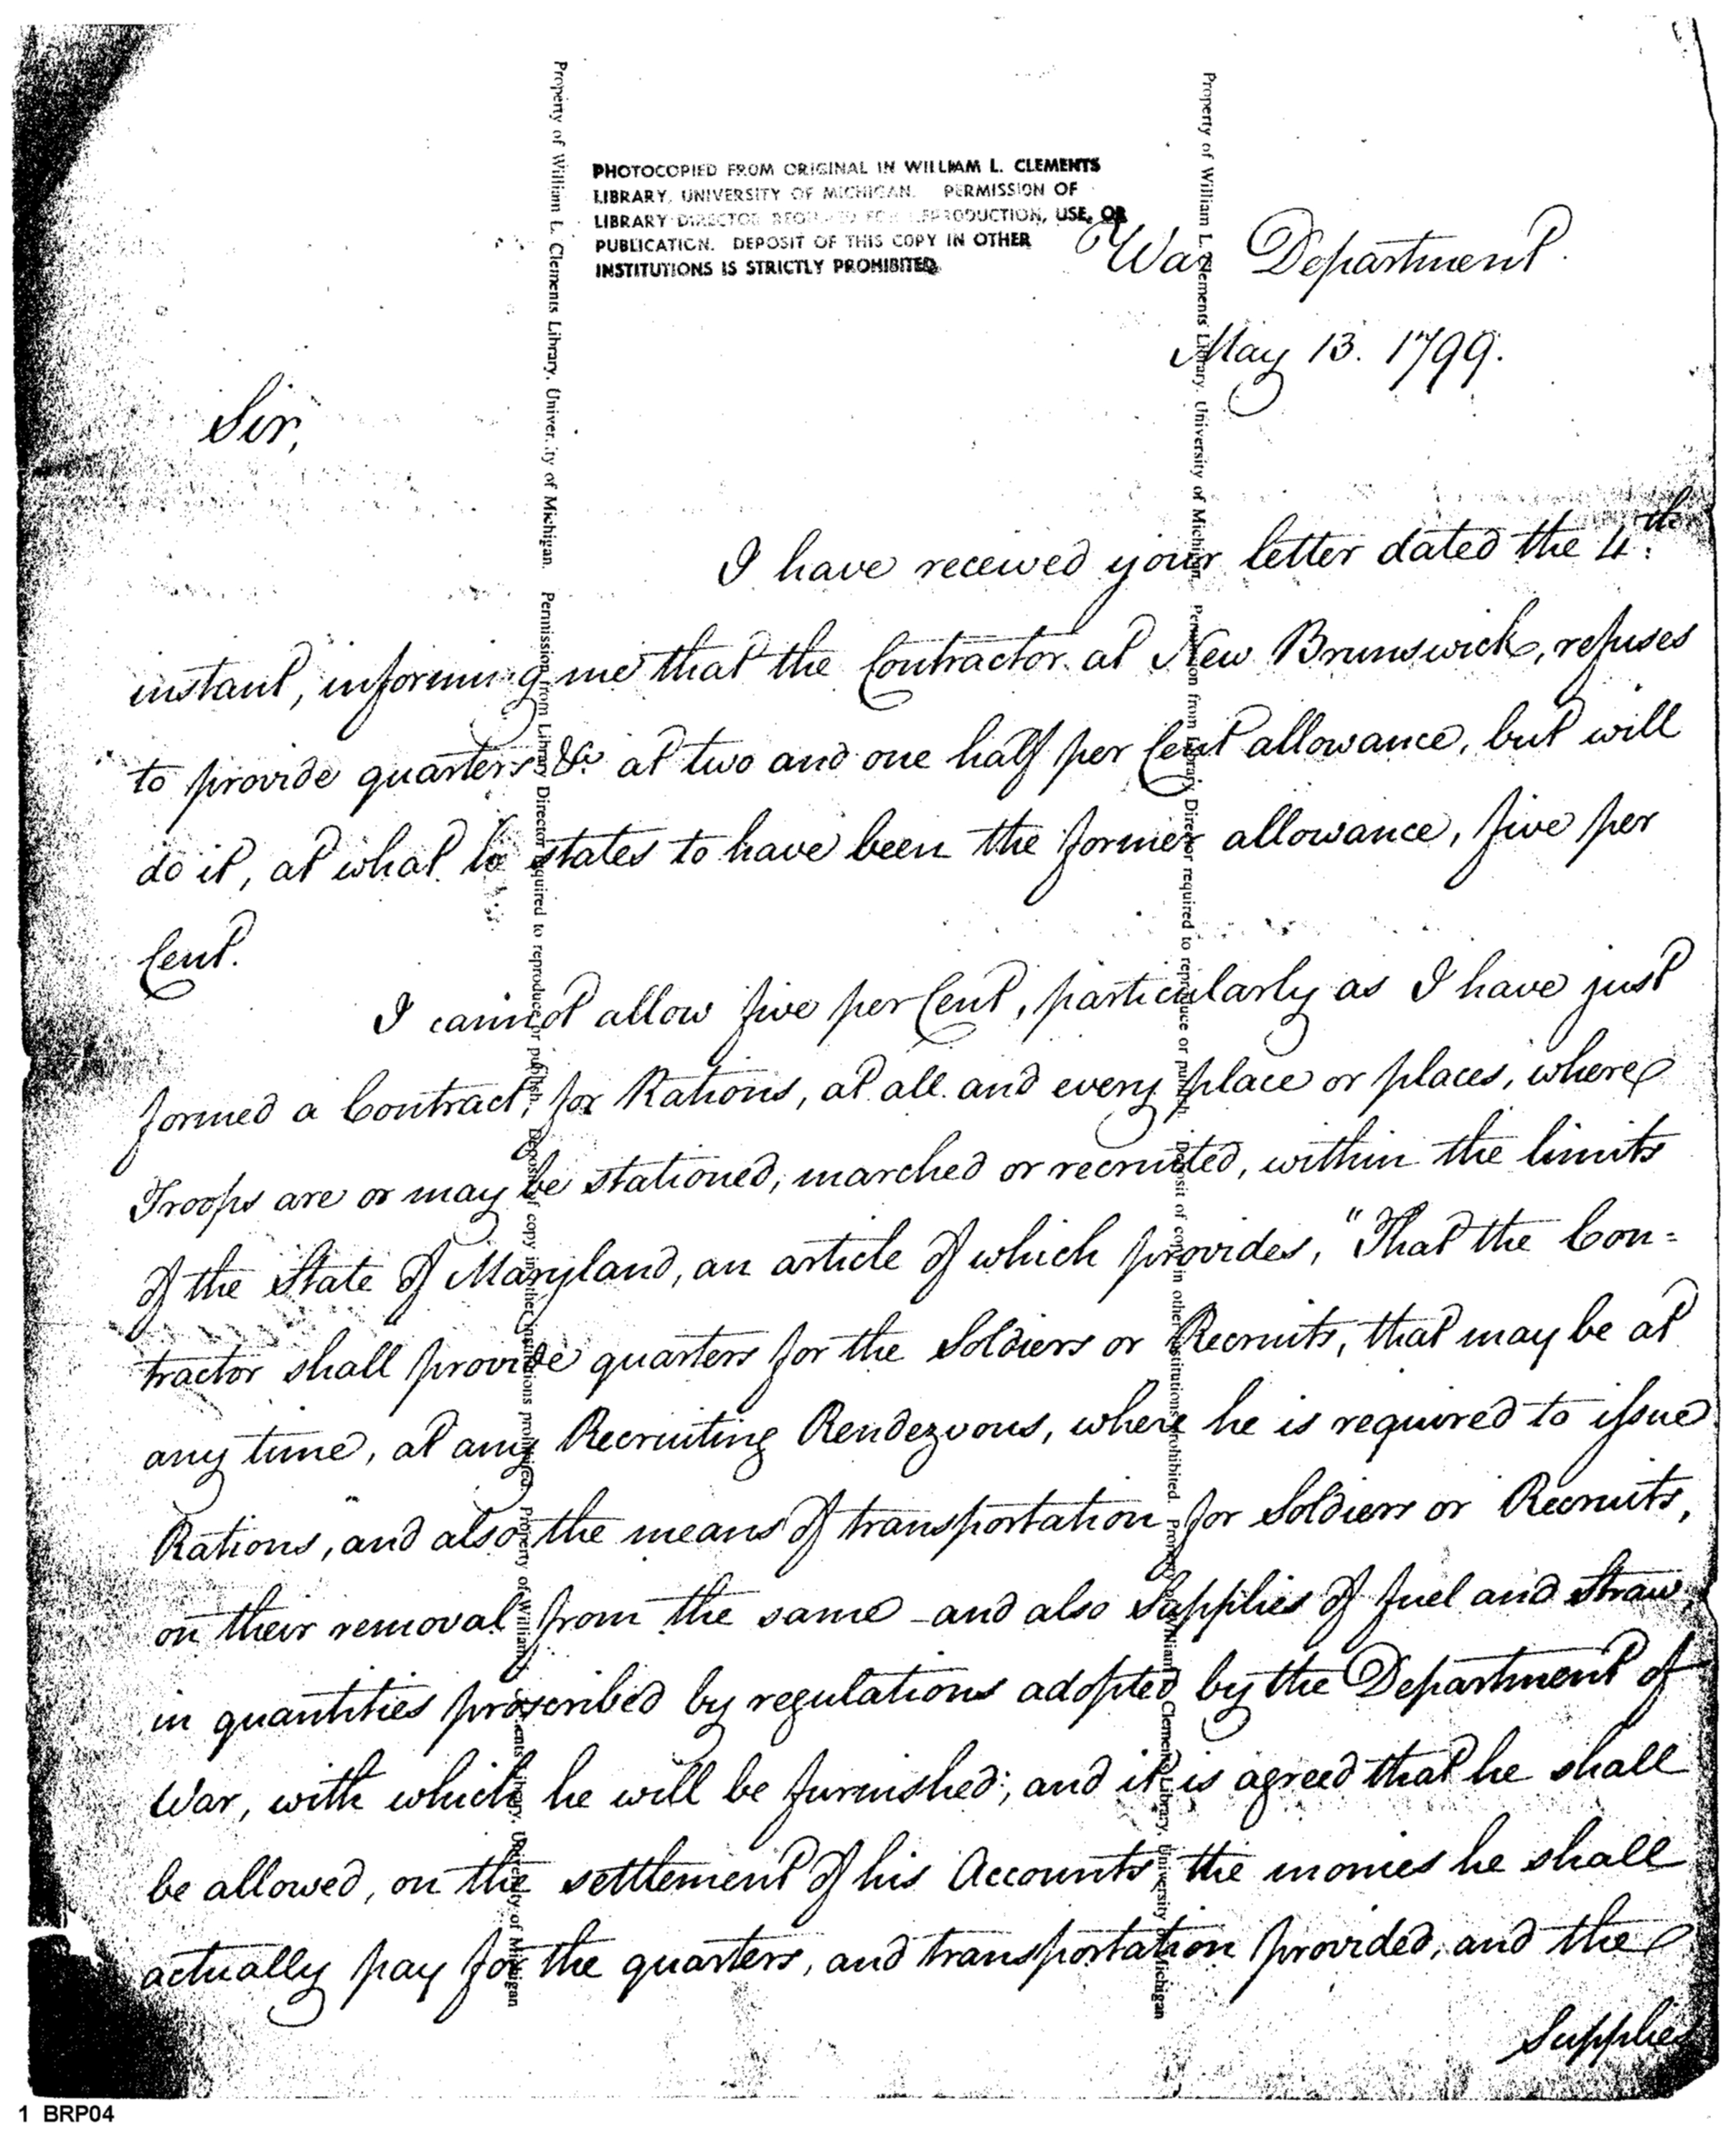 PHOTOCOPIED FROM ORIGINAL IN WILLIAM L. CLEMENTS
LIBRARY, UNIVERSITY OF MICHIGAN. PERMISSION OF
LIBRARY DIRECTOR REQUIRED FOR REPRODUCTION, USE, OR
PUBLICATION. DEPOSIT OF THIS COPY IN OTHER
INSTITUTIONS IS STRICTLY PROHIBITED.
War Department.
May 13. 1799.
Sir,
I have received your letter dated the 4th.
instant, informing me that the Contractor at New Brunswick, refuses
to provide quarters &c at two and one half per Cent allowance, but will
do it, at what he states to have been the former allowance, five per
Cent.
I cannot allow five per Cent, particularly as I have just
formed a Contract, for Rations, at all and every place or places, where
Troops are or may be stationed, marched or recruited, within the limits
of the State of Maryland, an article of which provides, "That the Con=
tractor shall provide quarters for the Soldiers or Recruits, that may be at
any time, at any Recruiting Rendezvous, where he is required to issue
Rations, and also the means of transportation for Soldiers or Recruits,
on their removal from the same - and also Supplies of fuel and Straw,
in quantities proscribed by regulations adopted by the Department of
War, with which he will be furnished; and it is agreed that he shall
be allowed, on the settlement of his Accounts the monies he shall
actually pay for the quarters, and transportation provided, and the
Supplies
Property of William L. Clements Library, University of Michigan. Permission from Library Director required to reproduce or publish. Deposit of copy in other institutions prohibited. Property of William L. Clements Library, University of Michigan
Property of William L. Clements Library, University of Michigan. Permission from Library Director required to reproduce or publish. Deposit of copy in other institutions prohibited. Property of William L. Clements Library, University of Michigan
1 BRP04